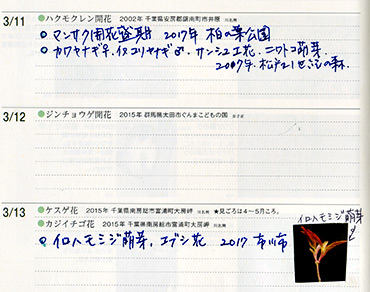 3/11 ●ハクモクレン開花 2002年 千葉県安房郡鋸南町市井原 川名興
○ マンサク開花盛期 2017年 柏の葉公園
○ カワヤナギ♀、イヌコリヤナギ♂、サンシュユ花、ニワトコ萌芽、
2007年、松戸21世紀の森、
3/12 ●ジンチョウゲ開花 2015年 群馬県太田市ぐんまこどもの国
3/13 ●ケスゲ花 2015年 千葉県南房総市富浦町大房岬 川名興 ★見ごろは4～5月ころ。
●カジイチゴ花 2015年 千葉県南房総市富浦町大房岬 川名興
○ イロハモミジ萌芽、コブシ花 2017 市川市
イロハモミジ萌芽